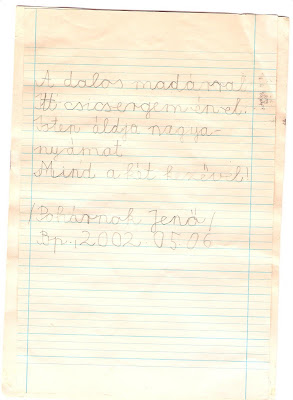 A dalos madárral
Itt csicsergem én el.
Isten áldja nagya-
nyámat
Mind a két kezével!
/Pohárnok Jenő/
Bp., 2002 05 06